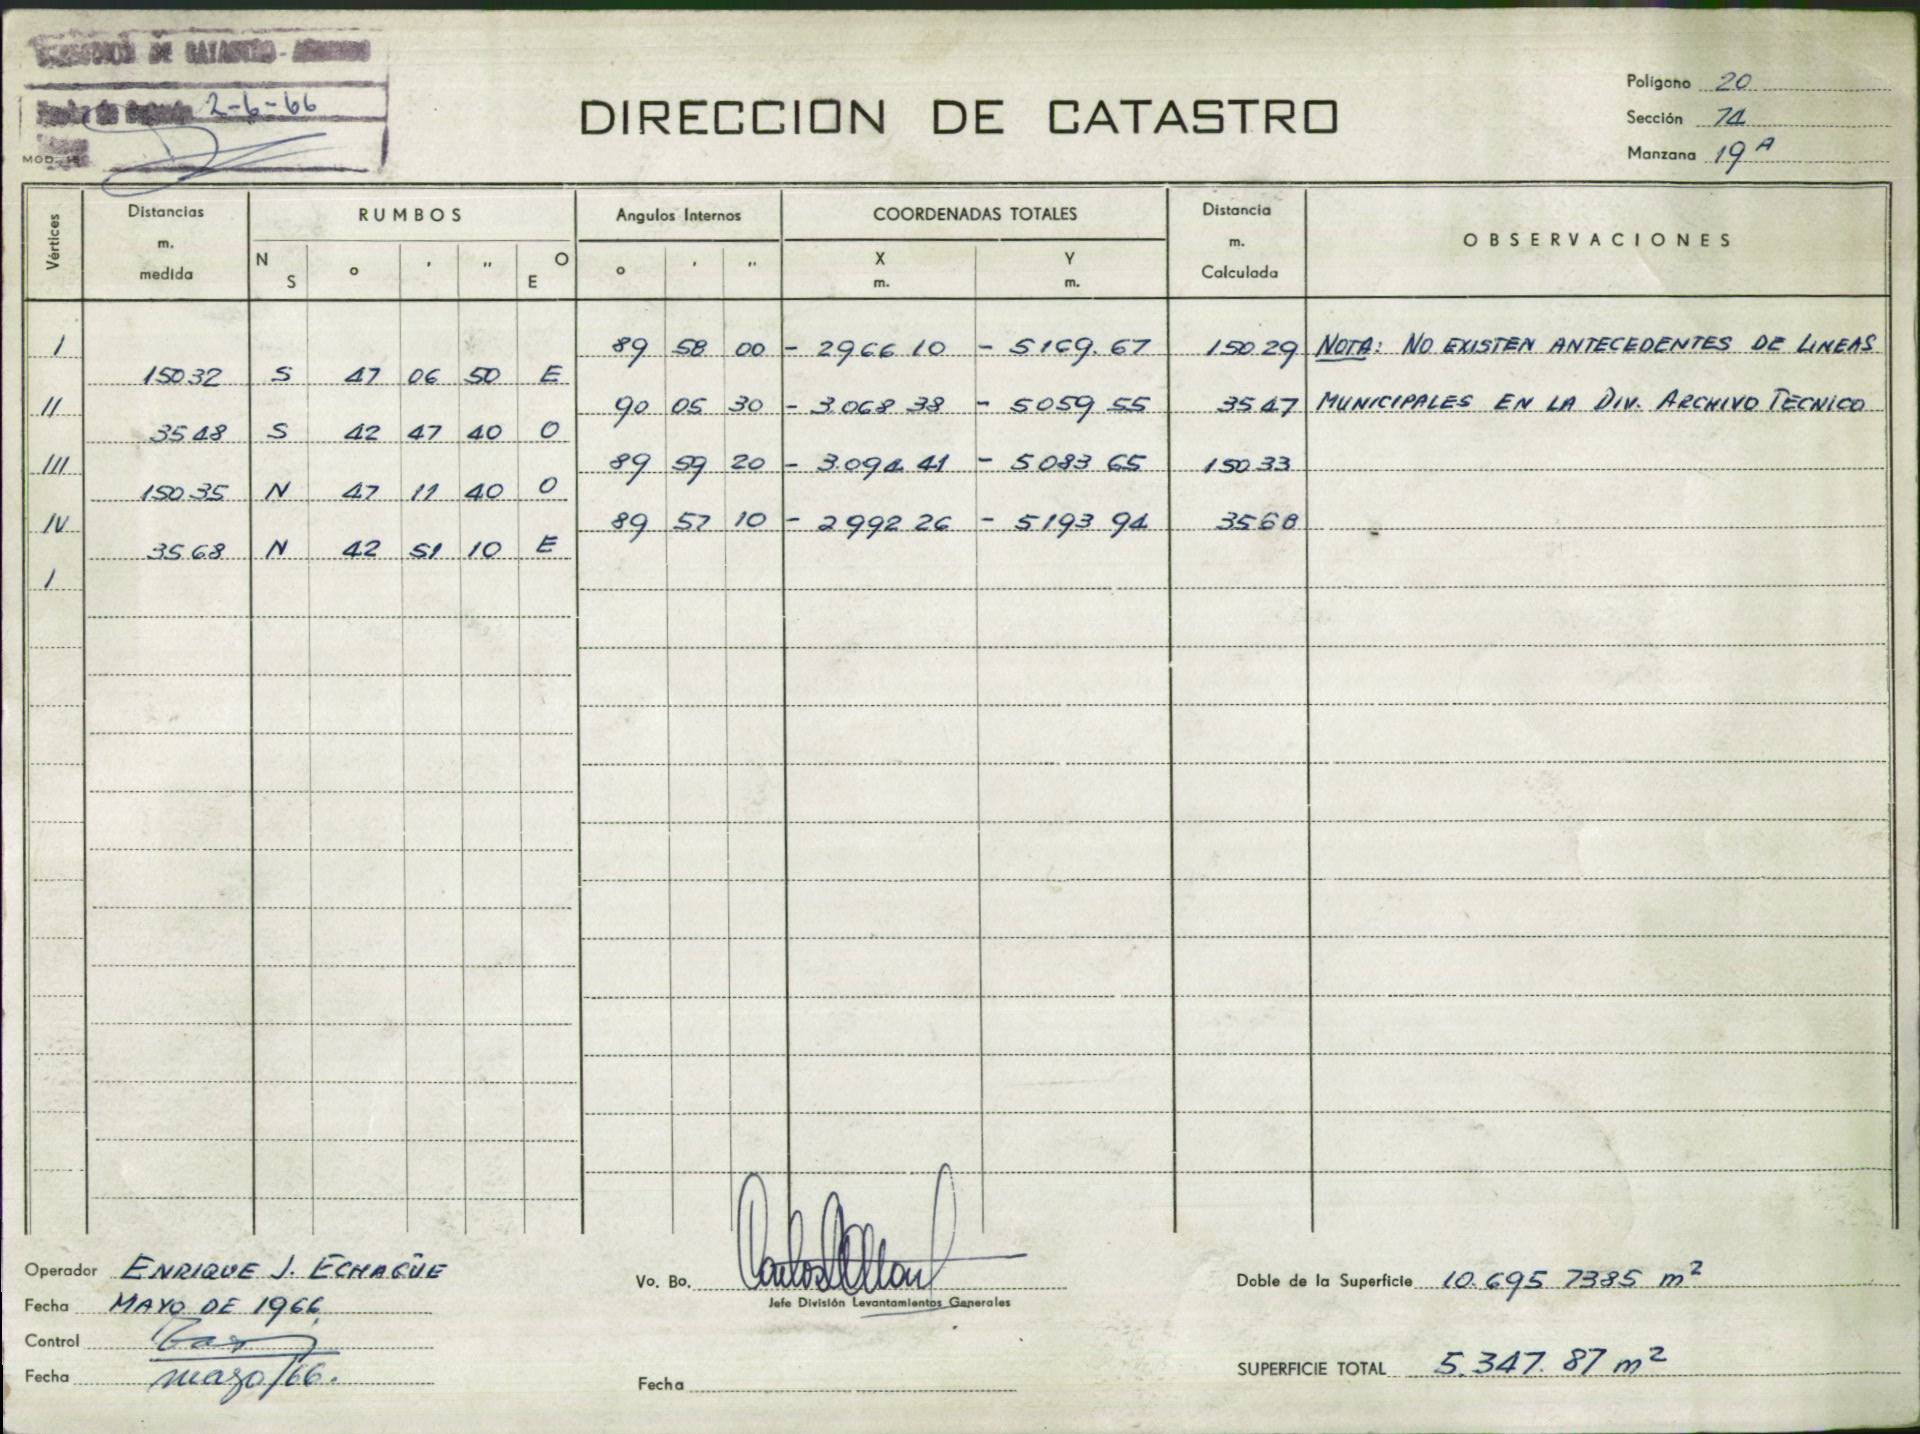 DE CATASTRO
2-6-66
MOD.
DIRECCION DE CATASTRO
Polígono 20
Sección 74
Manzana 19 A
Vértices
Distancias m. medida
RUMBOS
Angulos Internos
COORDENADAS TOTALES
Distancia m. Calculada
OBSERVACIONES
N S o ' " E O
o ' "
X m. Y m.
I 89 58 00 - 2966 10 - 5169.67 150 29 NOTA: NO EXISTEN ANTECEDENTES DE LINEAS
150 32 S 47 06 50 E
II 90 05 30 - 3.068 38 - 5059 55 35 47 MUNICIPALES EN LA DIV. ARCHIVO TECNICO
35 48 S 42 47 40 O
III 89 59 20 - 3.094 41 - 5083 65 150 33
150 35 N 47 11 40 O
IV 89 57 10 - 2992 26 - 5193 94 35 68
35 68 N 42 51 10 E
I
Operador ENRIQUE J. ECHAGÜE
Fecha MAYO DE 1966.
Control
Fecha mayo/66.
Vo. Bo.
Jefe División Levantamientos Generales
Fecha
Doble de la Superficie 10.695 7385 m2
SUPERFICIE TOTAL 5.347.87 m2